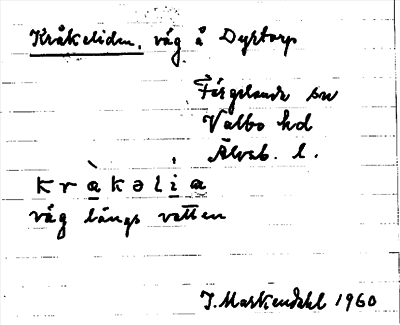 Kråkeliden, väg å Dyrtorp
Färgelanda sn
Valbo hd
Älvsb. l.
kràkəlía
väg längs vatten
J. Markendahl 1960